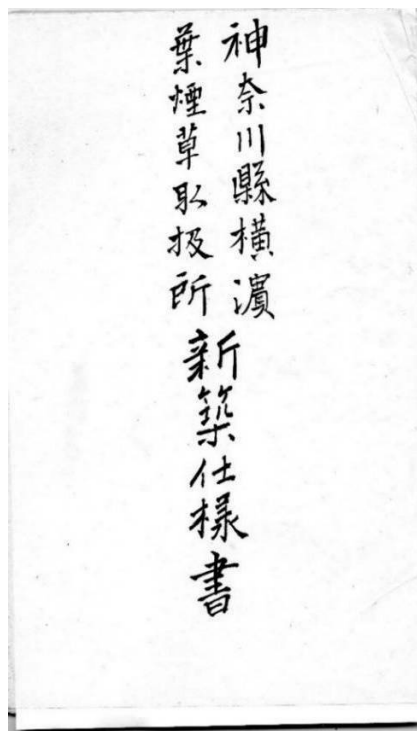 神奈川縣橫濱
葉煙草取扱所
新築仕樣書